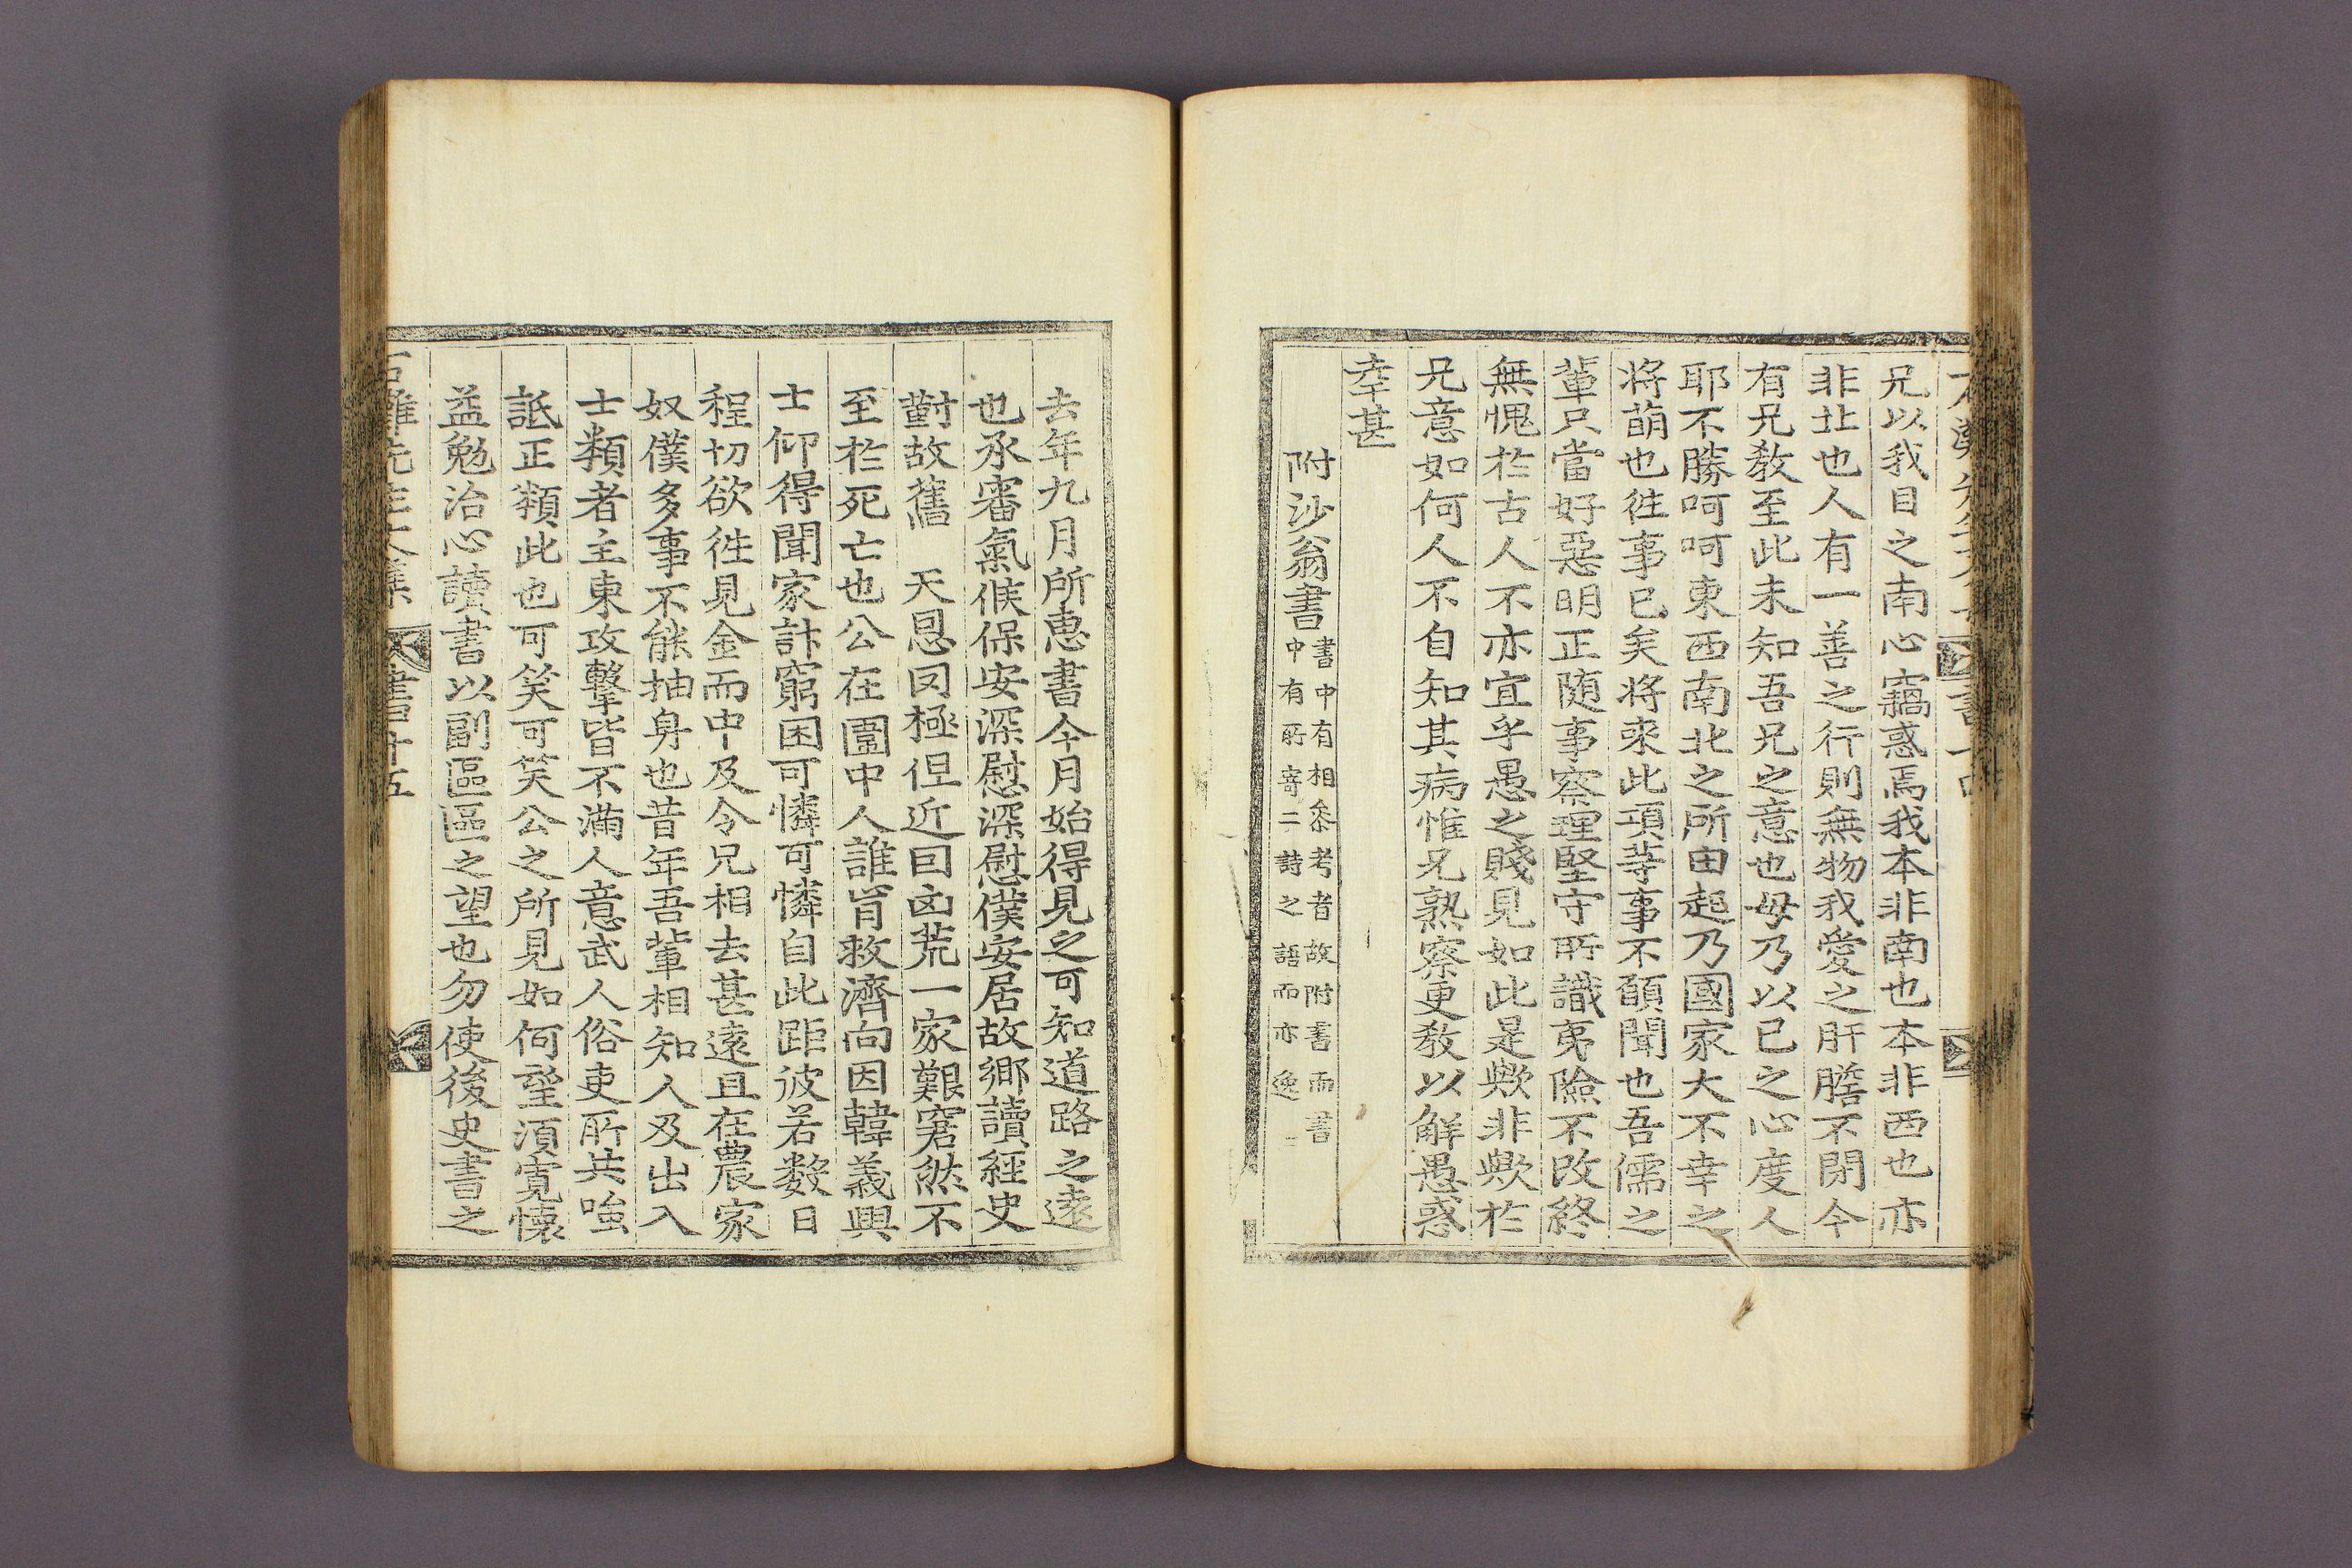 兄以我目之南心竊惑焉我本非南也本非西也亦
非北也人有一善之行則無物我愛之肝膽不閉今
有兄敎至此未知吾兄之意也毋乃以已之心度人
耶不勝呵呵東西南北之所由起乃國家大不幸之
将萌也徃事已矣将來此項等事不願聞也吾儒之
輩只當好惡明正随事察理堅守所識夷險不改終
無愧於古人不亦宜乎愚之賤見如此是歟非歟於
兄意如何人不自知其病惟兄熟察更敎以解愚惑
幸甚
附沙翁書書中有相叅考者故附書而書
中有所寄二詩之語而亦逸
去年九月所惠書今月始得見之可知道路之遠
也承審氣候保安深慰深慰僕安居故鄕讀經史
對故舊 天恩罔極但近因凶荒一家艱窘然不
至於死亡也公在圍中人誰肯救濟向因韓義興
士仰得聞家計窮困可憐可憐自此距彼若数日
程切欲徃見金而中及令兄相去甚遠且在農家
奴僕多事不能抽身也昔年吾輩相知人及出入
士類者主東攻擊皆不滿人意武人俗吏所共嗤
詆正類此也可笑可笑公之所見如何望湏寛懐
益勉治心讀書以副區區之望也勿使後史書之